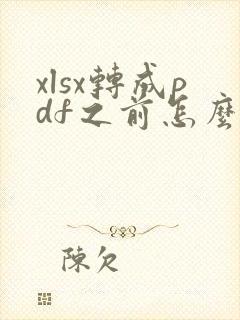 xlsx轉成p
df之前怎麼
陳欠